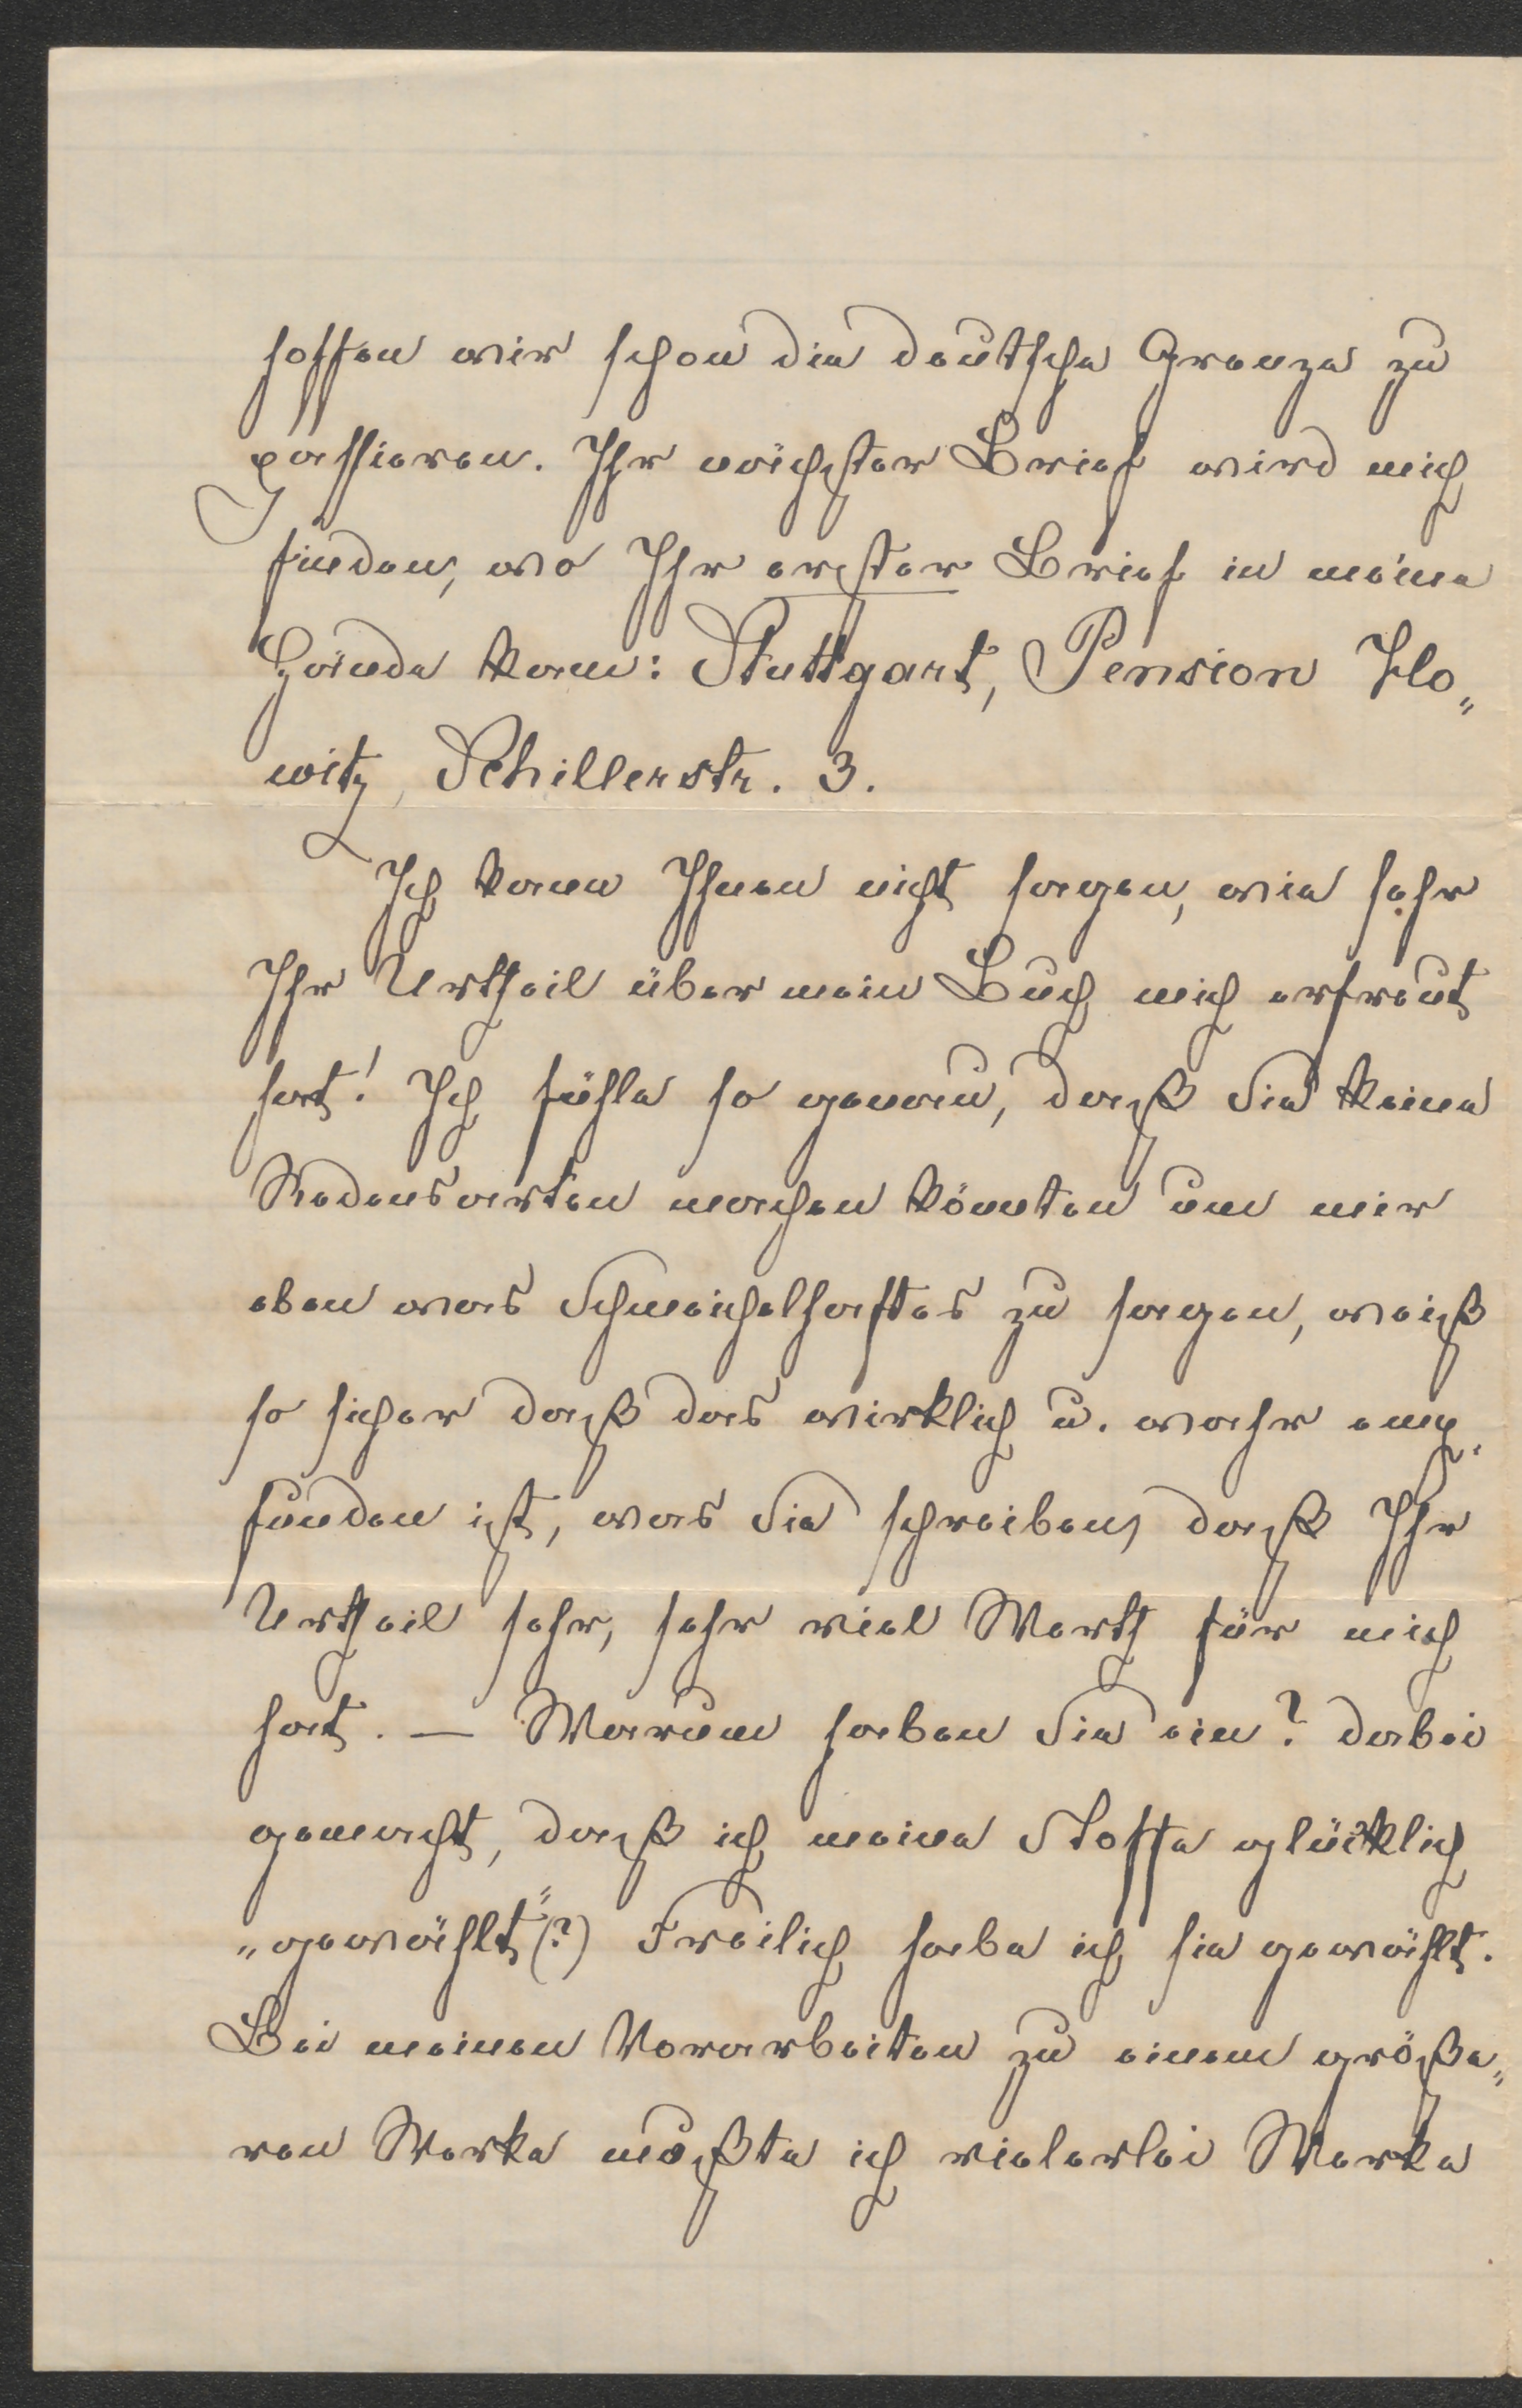 hoffen wir schon die deutsche Grenze zu
passieren. Ihr nächster Brief wird mich
finden, wo Ihr erster Brief in meine
Hände kam: Stuttgart, Pension Flo„
witz, Schillerstr. 3.
Ich kann Ihnen nicht sagen, wie sehr
Ihr Urtheil über mein Buch mich erfreut
hat! Ich fühle so genau, daß Sie keine
Redensarten machen könnten um mir
eben was Schmeichelhaftes zu sagen, weiß
so sicher daß das wirklich u. wahr emp„
funden ist, was Sie schreiben, daß Ihr
Urtheil sehr, sehr viel Werth für mich
hat. — Warum haben Sie ein ? dabei
gemacht, daß ich meine Stoffe glücklich
„gewählt“ (?) Freilich habe ich sie gewählt.
Bei meinen Vorarbeiten zu einem größe„
ren Werke mußte ich vielerlei Werke